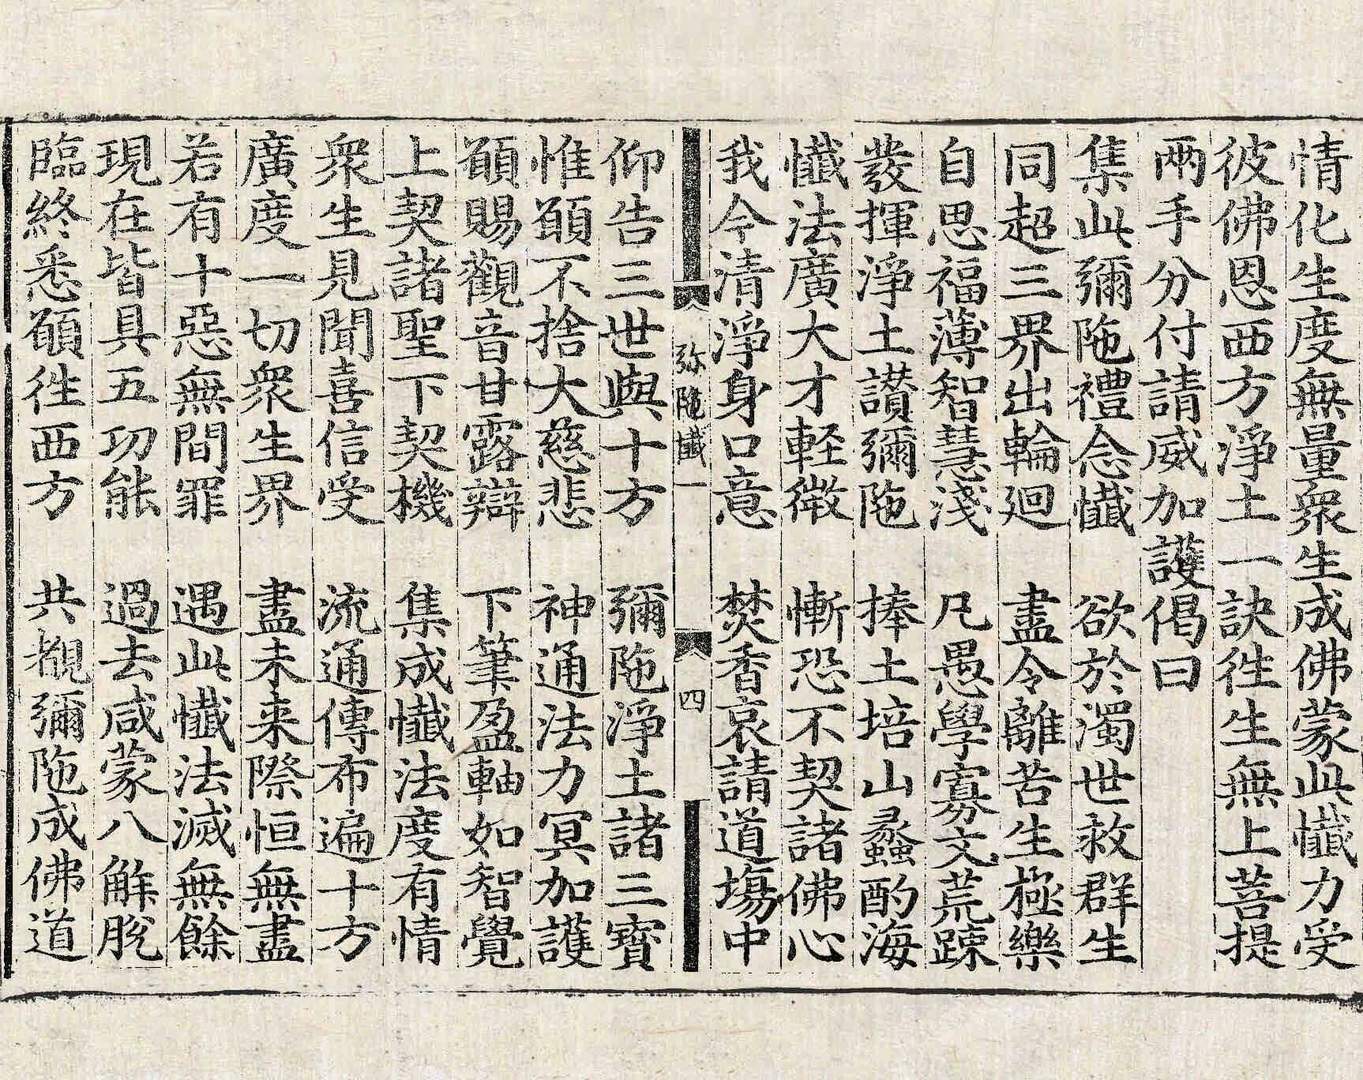 情化生度無量衆生成佛蒙此懺力受
彼佛恩西方淨土一訣徃生無上菩提
兩手分付請威加護偈曰
集此彌陁禮念懺 欲於濁世救群生
同超三界出輪廻 盡令離苦生極樂
自思福薄智慧淺 凡愚學寡文荒踈
發揮淨土讃彌陁 捧土培山蠡酌海
懺法廣大才軽微 慚恐不契諸佛心
我今清淨身口意 焚香哀請道塲中
弥陁懺一 四
仰告三世與十方 彌陁淨土諸三寳
惟願不捨大慈悲 神通法力冥加護
願賜觀音甘露辯 下筆盈軸如智覺
上契諸聖下契機 集成懺法度有情
衆生見聞喜信受 流通傳布遍十方
廣度一切衆生界 盡未来際恒無盡
若有十惡無間罪 遇此懺法滅無餘
現在皆具五功能 過去咸蒙八解脫
臨終悉願徃西方 共覩彌陁成佛道